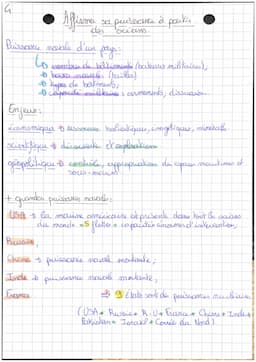 Affirmer sa puissance à partir
des océans
Puissance navale d'un pays:
↳ nombre de bâtiments (bateaux militaires),
bases navales (tailles)
types de bâtiments,
militaires: armements, dissuasion
Enjeux:
économique → ressources halieutiques, énergétiques, minerals
scientifique → découverte et exploration
géopolitique → contrôle, appropriation du espace maritimes et
sous-marins
+ grandes puissances navales:
USA → la marine américaine et présente dans tout les océans
du monde = 5 flottes = capacité énorme d'intervention,
Russie,
Chine → puissance navale montante,
Inde → puissance navale montante,
France ⇒ 9 états sont de puissances nucléaires
(USA + Russie + R.U + France + Chine + Inde +
Pakistan + Israël + Corée du Nord)